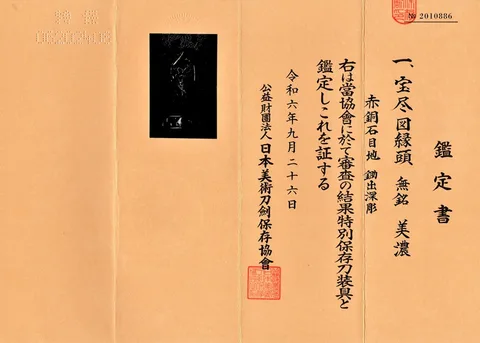 № 2010886
鑑定書
一、宝尽図縁頭 無銘 美濃
赤銅石目地 鋤出深彫
右は當協會に於て審査の結果特別保存刀装具と
鑑定しこれを証する
令和六年九月二十六日
公益財團法人日本美術刀劍保存協會